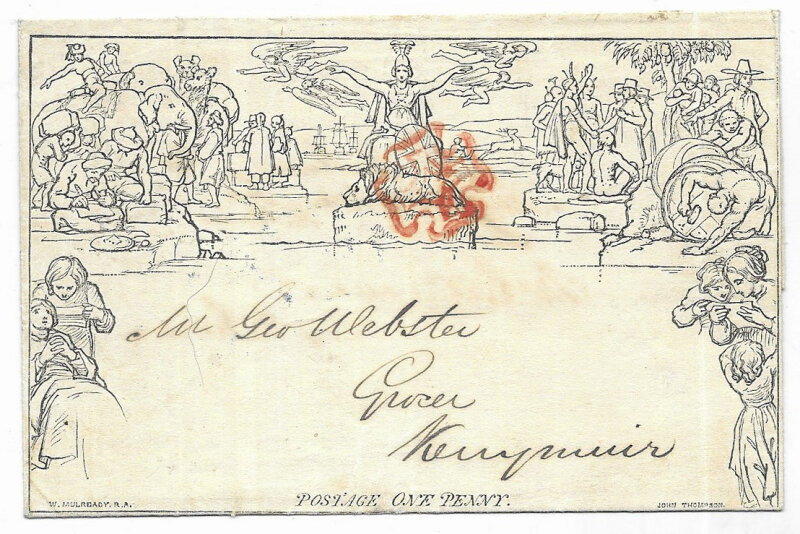 Mr Geo Webster
Grocer
Kerrymuir
POSTAGE ONE PENNY.
W. MULREADY. R.A.
JOHN THOMPSON.